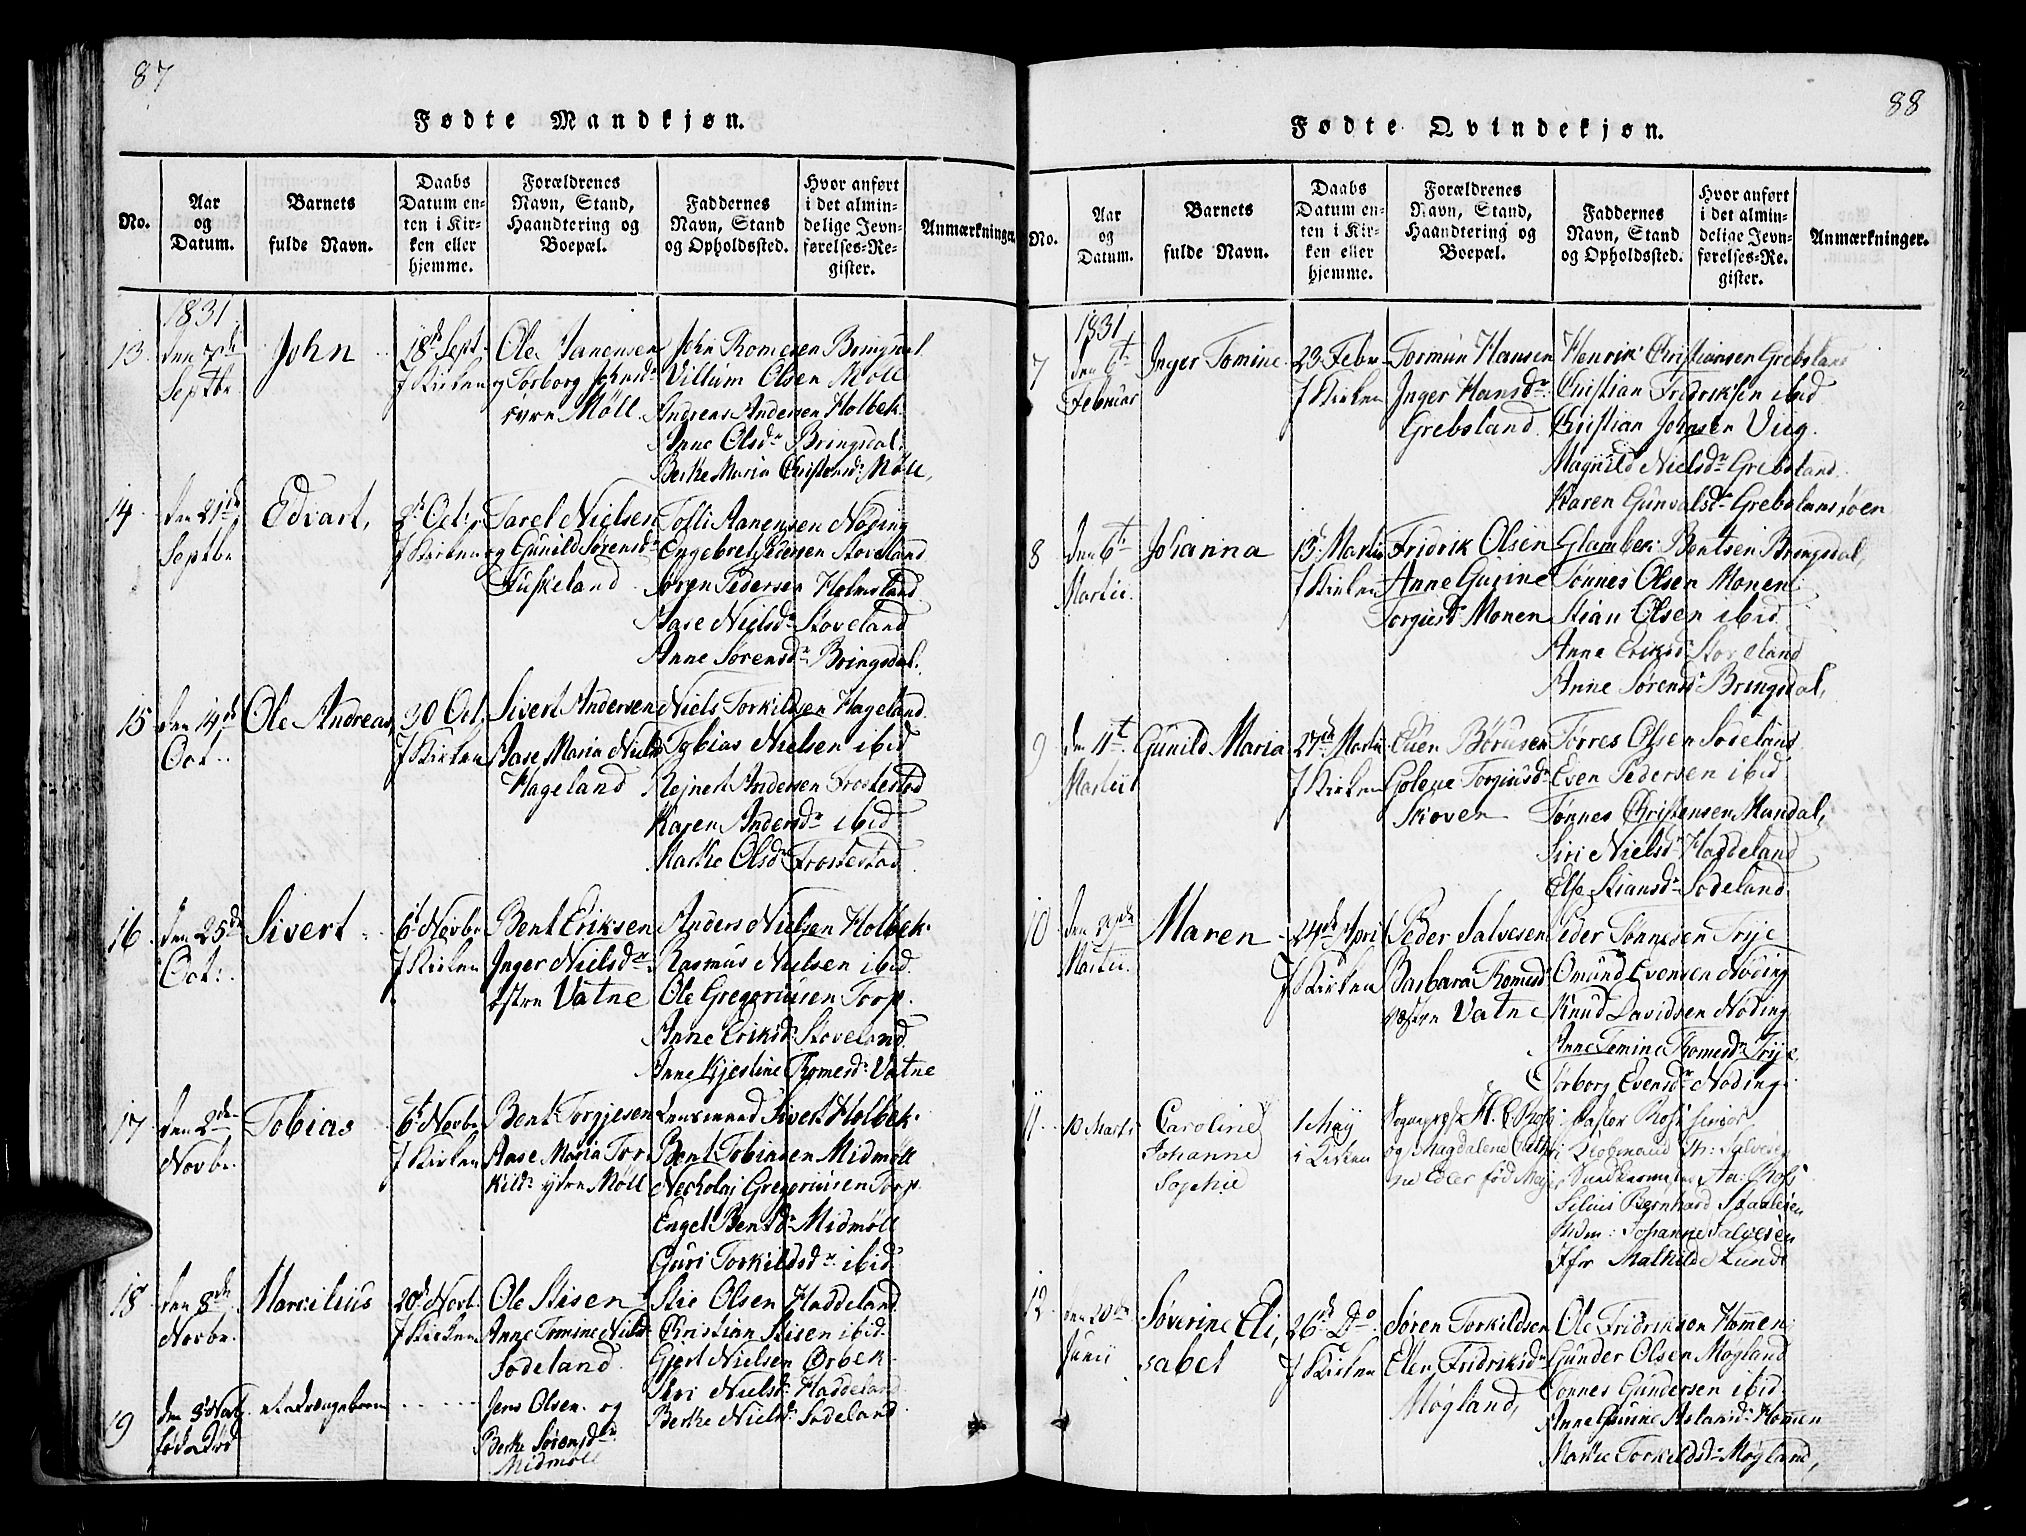 87
Fødte Mandkjøn.
No.
Aar
og
Datum.
Barnets
fulde Navn.
Daabs
Datum en-
ten i Kir-
ken eller
hjemme.
Forældrenes
Navn, Stand,
Haandtering og
Boepæl.
Faddernes
Navn, Stand
og Opholdssted.
Hvor anført
i det almin-
delige Jevn-
førelses-Re-
gister.
Anmærkninger.
1831
13
den 7de
Septbr
John
18de Sept
J Kirken
Ole Janensen
og Torborg Johnsdr
Møll
John Romesen Bringsdal
Villum Olsen Møll
Andreas Andersen Holbek
Anne Olsdr Bringsdal
Berthe Maria Christensdr Møll,
14
den 21de
Septbr
Edvart,
2de Oct.
J Kirken
Tarel Nielsen
og Gunild Sørensdr
Tuskeland
Tolli Aanensen Nøding
Engebret Pedersen Stoveland
Søren Pedersen Holmsland
Aase Nielsdr Stoveland
Anne Sørensdr Bringsdal.
15
den 14de
Oct.
Ole Andreas,
30 Oct.
J Kirken
Sivert Andersen
Aase Maria Nielsd
Hageland
Niels Torkildsen Hageland
Tobias Nielsen ibid
Rejnert Andersen Frostestad
Karen Andersdr ibid
Marthe Olsdr Frostestad
16
den 25de
Oct:
Sivert
6t Novbr
J Kirken
Bent Eriksen
Inger Nielsdr
østre Vatne
Anders Nielsen Holbek.
Rasmus Nielsen ibid
Ole Gregoriusen Torp.
Anne Eriksdr Stoveland
Anne Kjestine Romesdr Vatne
17
den 2den
Novbr.
Tobias
6t Novbr
J Kirken
Bent Torgjesen
Aase Maria Tor
kildr ytre Møll
Lensmand Sivert Holbek.
Bent Tobiasen Midmøll
Necholaj Gregoriusen Torp.
Engel Bentsdr Midmøll
Guri Torkildsdr ibid
18
den 8de
Novbr.
Marcilius
20de Novb.
J Kirken
Ole Stisen
Anne Tomine Nielsd
Sodeland
Stie Olsen Haddeland
Christian Stisen ibid.
Gjert Nielsen Ørbek
Siri Nielsdr Haddeland
Berthe Nielsdr Sodeland
19
fød
Jens Olsen og
Berthe Sørensdr
Midmøll
88
Fødte Qvindekjøn.
No.
Aar
og
Datum.
Barnets
fulde Navn.
Daabs
Datum en-
ten i Kir-
ken eller
hjemme.
Forældrenes
Navn, Stand,
Haandtering og
Boepæl.
Faddernes
Navn, Stand
og Opholdssted.
Hvor anført
i det almin-
delige Jevn-
førelses-Re-
gister.
Anmærkninger.
1831
7
den 6t
Februar
Inger Tomine
23 Febr
J Kirken
Tormun Hansen
Inger Hansdr
Grebsland
Henrik Christiansen Grebsland
Christian Fridriksen ibid
Christian Johnsen Uug.
Magnild Nielsdr Grebsland
Karen Gunvalsdr Grebslanstøen
8
den 6t
Martii.
Johanna
13 Martii
J Kirken
Fridrik Olsen
Anne Gurine
Torguisd Monen
Glambek Bentsen Bringsdal,
Tønnes Olsen Monen
Stian Olsen ibid
Anne Eriksdr Stoveland
Anne Sørensdr Bringsdal,
9
den 11t
Martii
Gunild Maria
27de Martii
J Kirken
Even Børusen
Golene Torgiusdr
Skoven
Torres Olsen Sodeland
Even Pedersen ibid
Tønnes Christensen Mandal,
Siri Nielsdr Haddeland
Else Stiansdr Sodeland
10
den
Martii.
Maren
24de April
J Kirken
Peder Salvesen
Barbara Romesd
Vatne
Peder Tønnesen Trye
Omund Evensen Nøding
Knud Davidsen Nøding
Anne Temine Romesdr Trye
Torborg Evensdr Nøding
11
10 Marts
Caroline
Johanne
Sophie
1 May
i Kirken
Sogneprest H. C. Rosf
og Magdalene Cath
ne Edler fød
Pastor Rosf senior
Kiøbmand Th: Salvesen
Silius Bernhard Staalesen
Mdm: Johanne Salvesen
Jfr Mathilde Lund
12
den 20de
Junii
Søverine Eli,
sabet
26de Do
J Kirken
Søren Torkildsen
Elen Fridriksdr
Møgland,
Ole Fridriksen Hommen
Gunder Olsen Møgland
Tønnes Gundersen ibid
Anne Gunine Aslansdr Hommen
Marthe Torkildsdr Møgland,